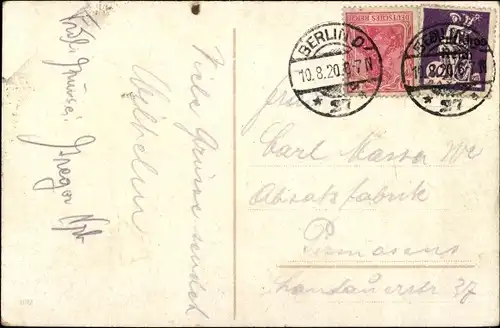 Viele Grüsse sendet
Wilhelm
Viele Grüsse
Gregor
BERLIN
10.8.20.6-7N
* 27
DEUTSCHES REICH
BERLIN
10.8.20.6
27
Carl Massa We
Absatzfabrik
Pirmasens
Landauerstr 37